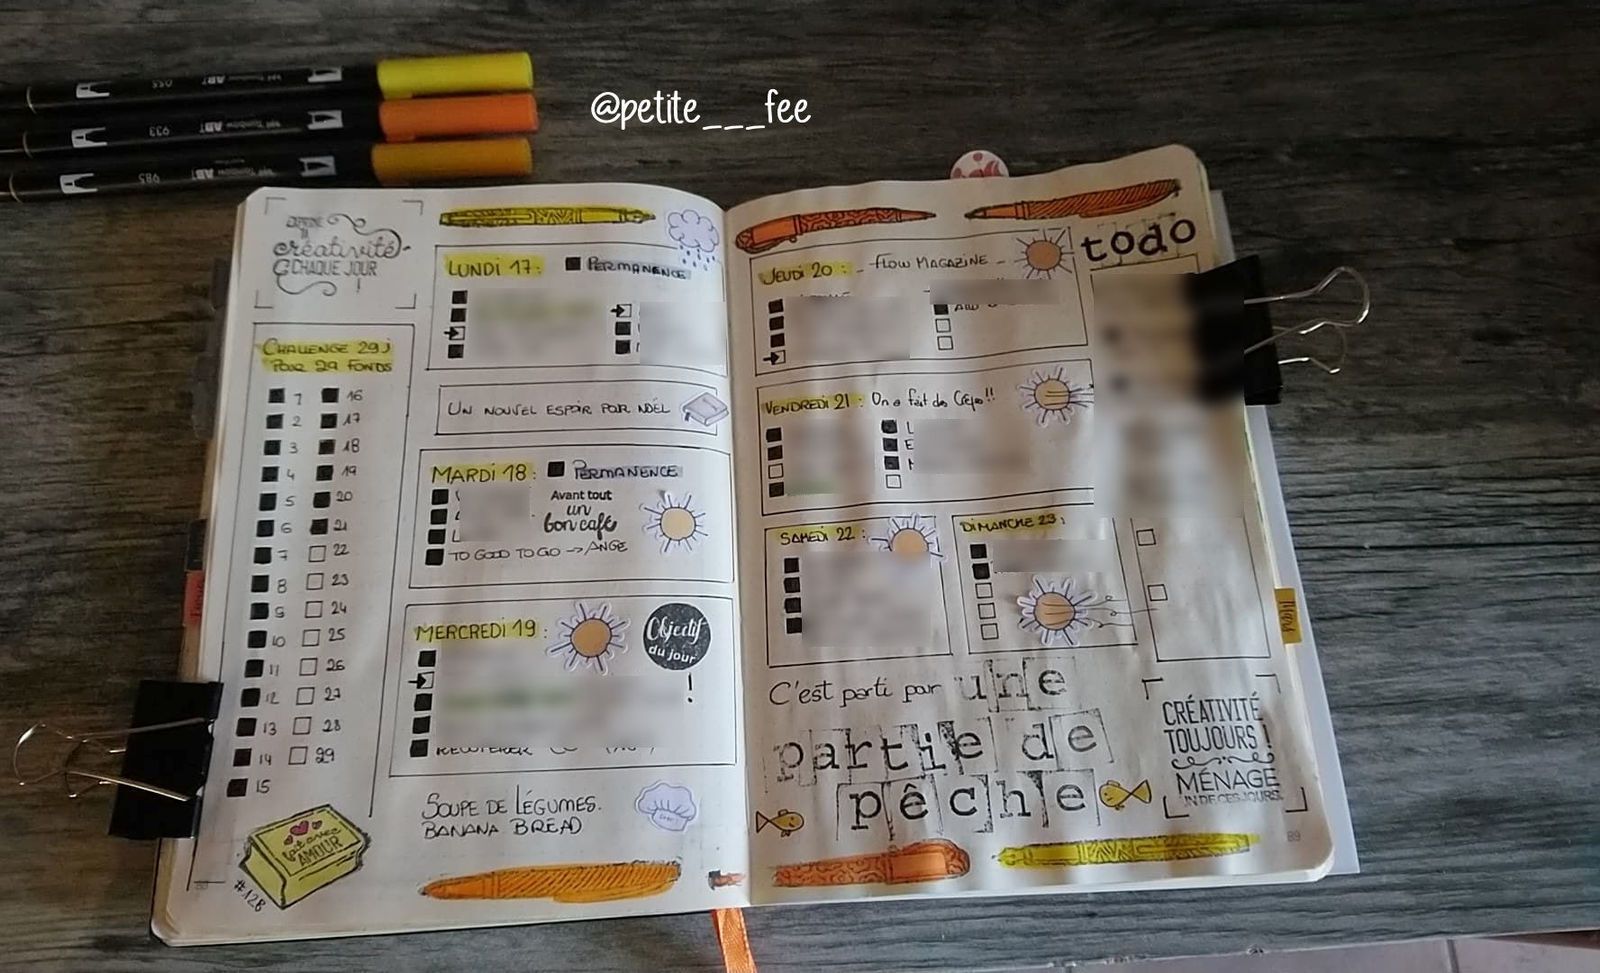 @petite___fee
055
Tombow ABT
933
Tombow ABT
985
Tombow ABT
créativité
CHAQUE JOUR
!
CHALLENGE 29j
POUR 29 FONDS
1 16
2 17
3 18
4 19
5 20
6 21
7 22
8 23
9 24
10 25
11 26
12 27
13 28
14 29
15
fait avec
AMOUR
#128
LUNDI 17 : PERMANENCE
UN NOUVEL ESPOIR POUR NOËL
MARDI 18 : PERMANENCE
Avant tout
un
bon café
TO GOOD TO GO -> ANGE
MERCREDI 19 :
Objectif
du jour
!
SOUPE DE LÉGUMES.
BANANA BREAD
JEUDI 20 : - FLOW MAGAZINE -
todo
VENDREDI 21 : On a fait des Crêpes !!
L
E
SAMEDI 22 :
DIMANCHE 23 :
C'est parti pour une
partie de
pêche
CRÉATIVITÉ
TOUJOURS !
MÉNAGE
UN DE CES JOURS.
89